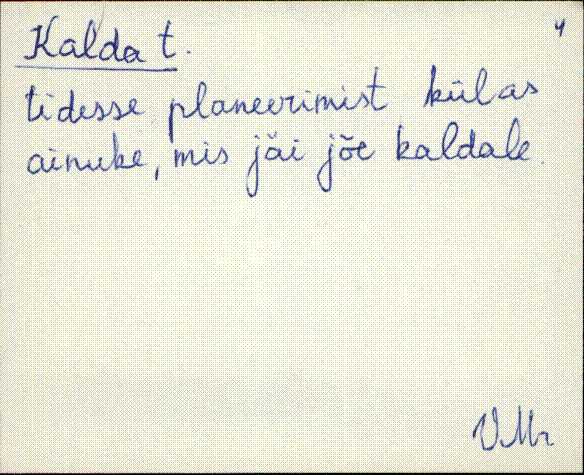 Kalda t. 4
tidesse planeerimist külas
ainuke, mis jäi jõe kaldale.
VMr